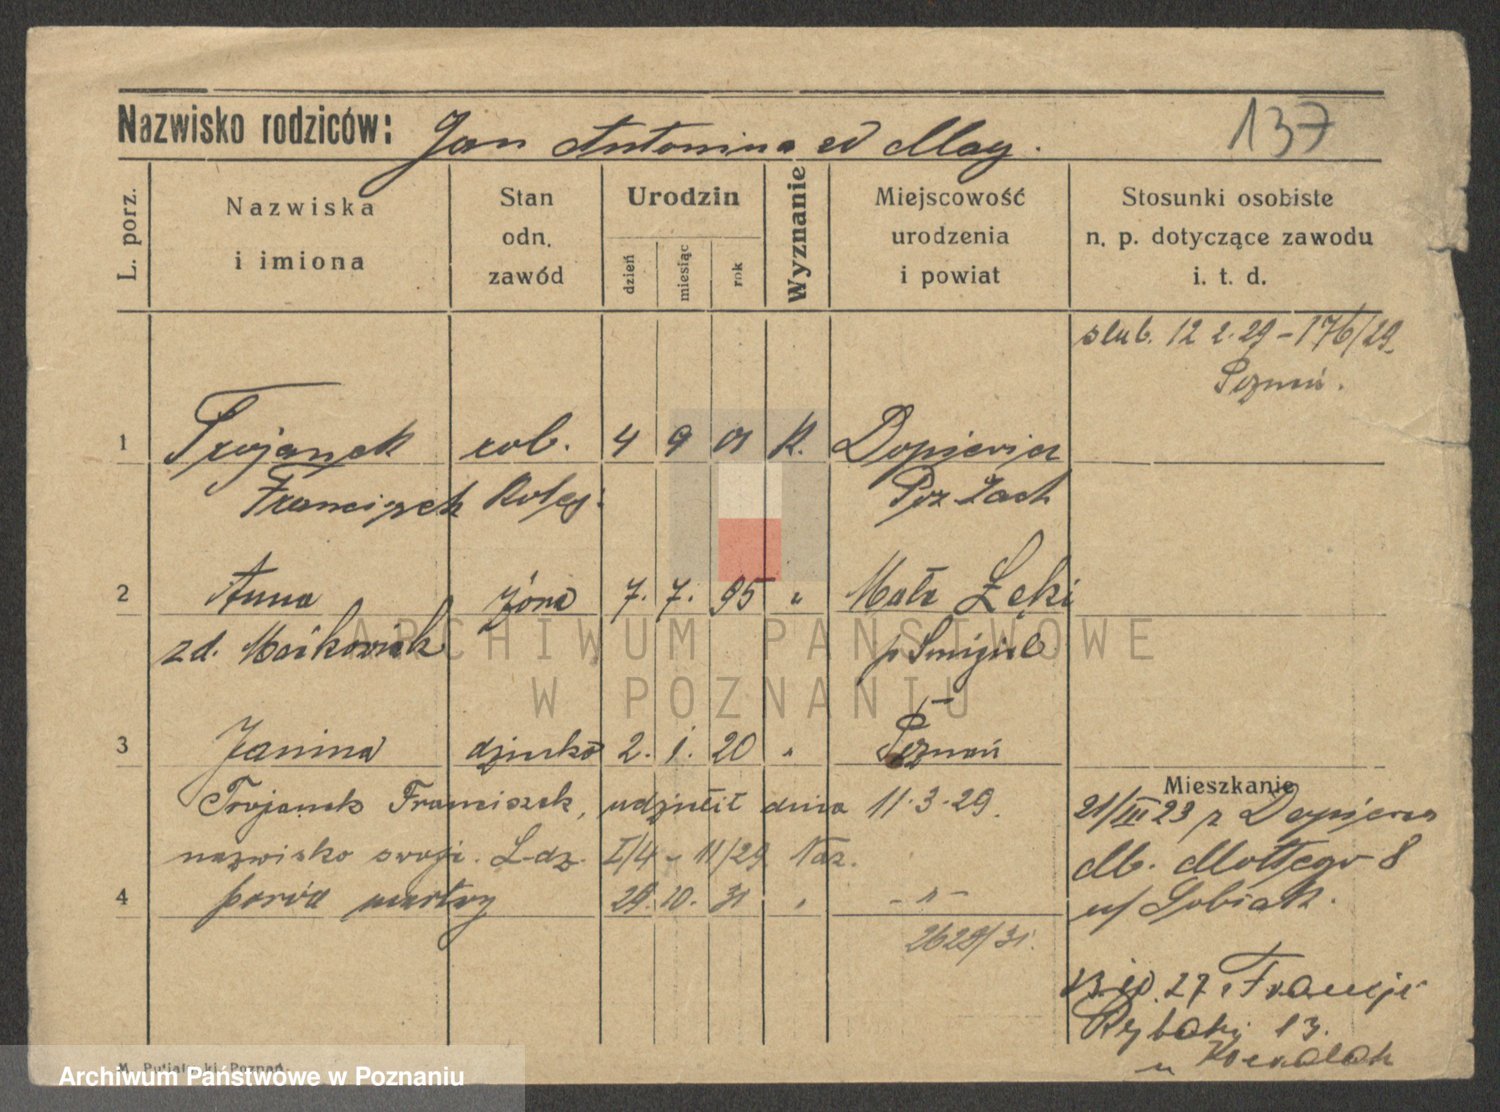 137
Nazwisko rodziców: Jan Antonina zd May.
L. porz.
Nazwiska
i imiona
Stan
odn.
zawód
Urodzin
dzień
miesiąc
rok
Wyznanie
Miejscowość
urodzenia
i powiat
Stosunki osobiste
n. p. dotyczące zawodu
i. t. d.
slub. 12 2. 29 - 176/29.
Poznań.
1 Trojanek rob. 4 9 01 K. Dopiewiec
Franciszek Kolej: Poz Zach
2 Anna żona 7. 7. 95 " Małe Łęki
zd. p Śmigiel
ARCHIWUM PAŃSTWOWE
W POZNANIU
3 Janina 2. 1. 20 " Poznań
Trojanek Franciszek, udzielił dnia 11.3.29.
nazwisko swoje. L.dz. I/4 - 11/29 Naz.
4 poród martwy 29. 10. 31 " - " -
2629/31.
Mieszkanie
21/III 23 z
8
u/ Sobiak.
27 z Francji
Rybaki 13.
u
Poznań
Archiwum Państwowe w Poznaniu